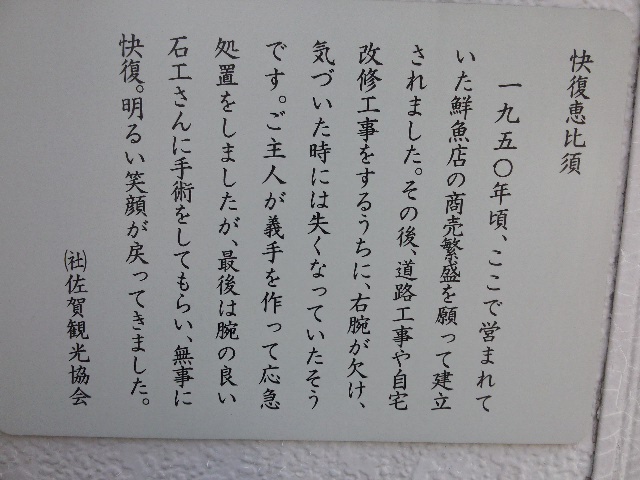 快復恵比須
一九五〇年頃、ここで営まれて
いた鮮魚店の商売繁盛を願って建立
されました。その後、道路工事や自宅
改修工事をするうちに、右腕が欠け、
気づいた時には失くなっていたそう
です。ご主人が義手を作って応急
処置をしましたが、最後は腕の良い
石工さんに手術をしてもらい、無事に
快復。明るい笑顔が戻ってきました。
㈳佐賀観光協会